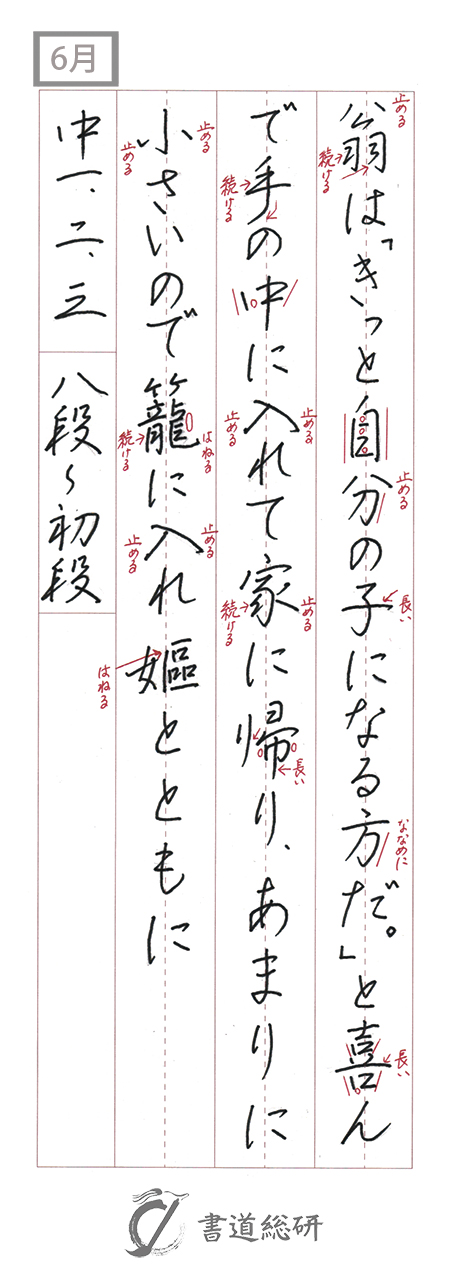 6月
翁は「きっと自分の子になる方だ。」と喜ん
で手の中に入れて家に帰り、あまりに
小さいので籠に入れ嫗とともに
中一、二、三 八段〜初段
止める
続ける
止める
長い
ななめに
長い
続ける
止める
止める
続ける
止める
長い
止める
止める
続ける
はねる
止める
止める
はねる
書道総研